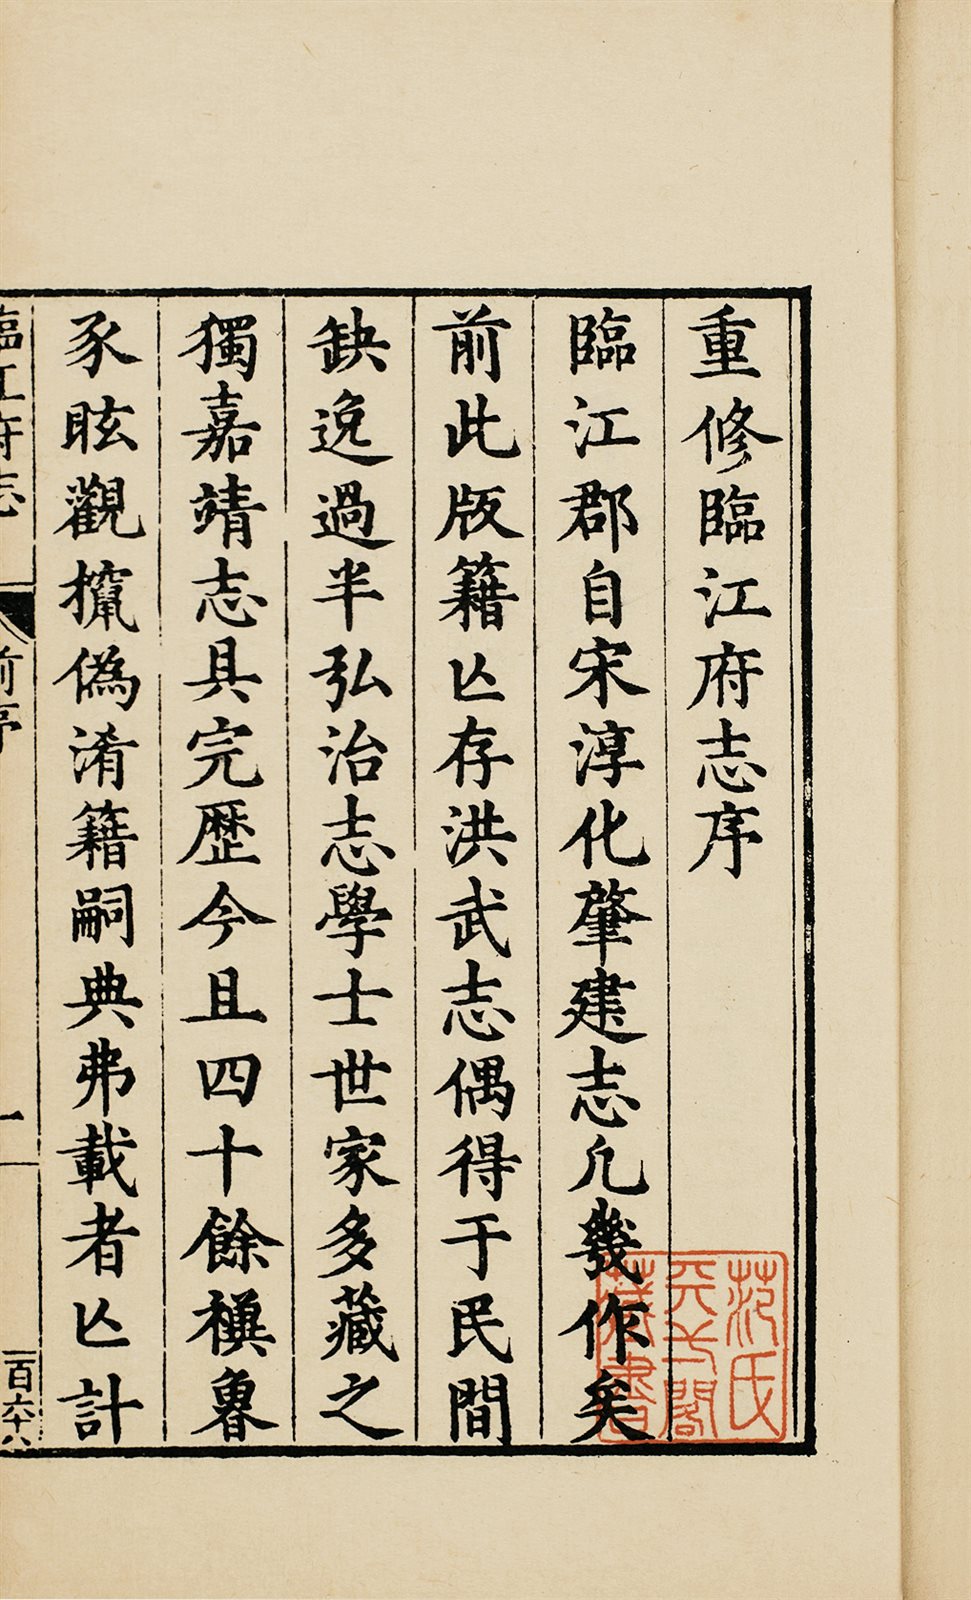 重修臨江府志序
臨江郡自宋淳化肇建志凢幾作矣
前此版籍亾存洪武志偶得于民間
缺逸過半弘治志學士世家多藏之
獨嘉靖志具完歷今且四十餘禩魯
豕眩觀攛偽淆籍嗣典弗載者亾計
臨江府志
前序
一
一百六十八
范氏
天一閣
藏書